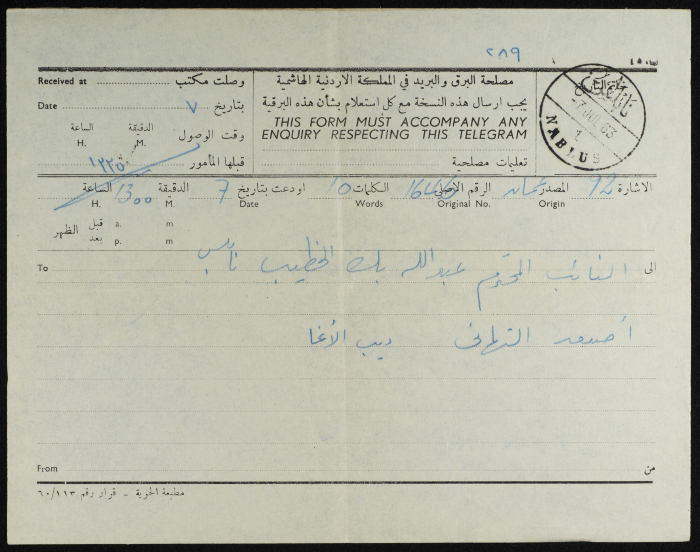 ٢٨٩
Received at وصلت مكتب
Date ٧ بتاريخ
الساعة الدقيقة وقت الوصول
H. M.
قبلها المأمور
مصلحة البرق والبريد في المملكة الاردنية الهاشمية
يجب ارسال هذه النسخة مع كل استعلام بشأن هذه البرقية
THIS FORM MUST ACCOMPANY ANY
ENQUIRY RESPECTING THIS TELEGRAM
تعليمات مصلحية
NABLUS
الاشارة 92 المصدر عمان الرقم الاصلي الكلمات 10 اودعت بتاريخ 7 الدقيقة الساعة 1300
Origin Original No. Words Date M. H.
الظهر قبل a. m
بعد p. m
To الى النائب المحترم عبدالله بك الخطيب نابلس
أصدق التهاني ديب الأغا
From من
مطبعة الحرية - قرار رقم ٦٠/١١٣